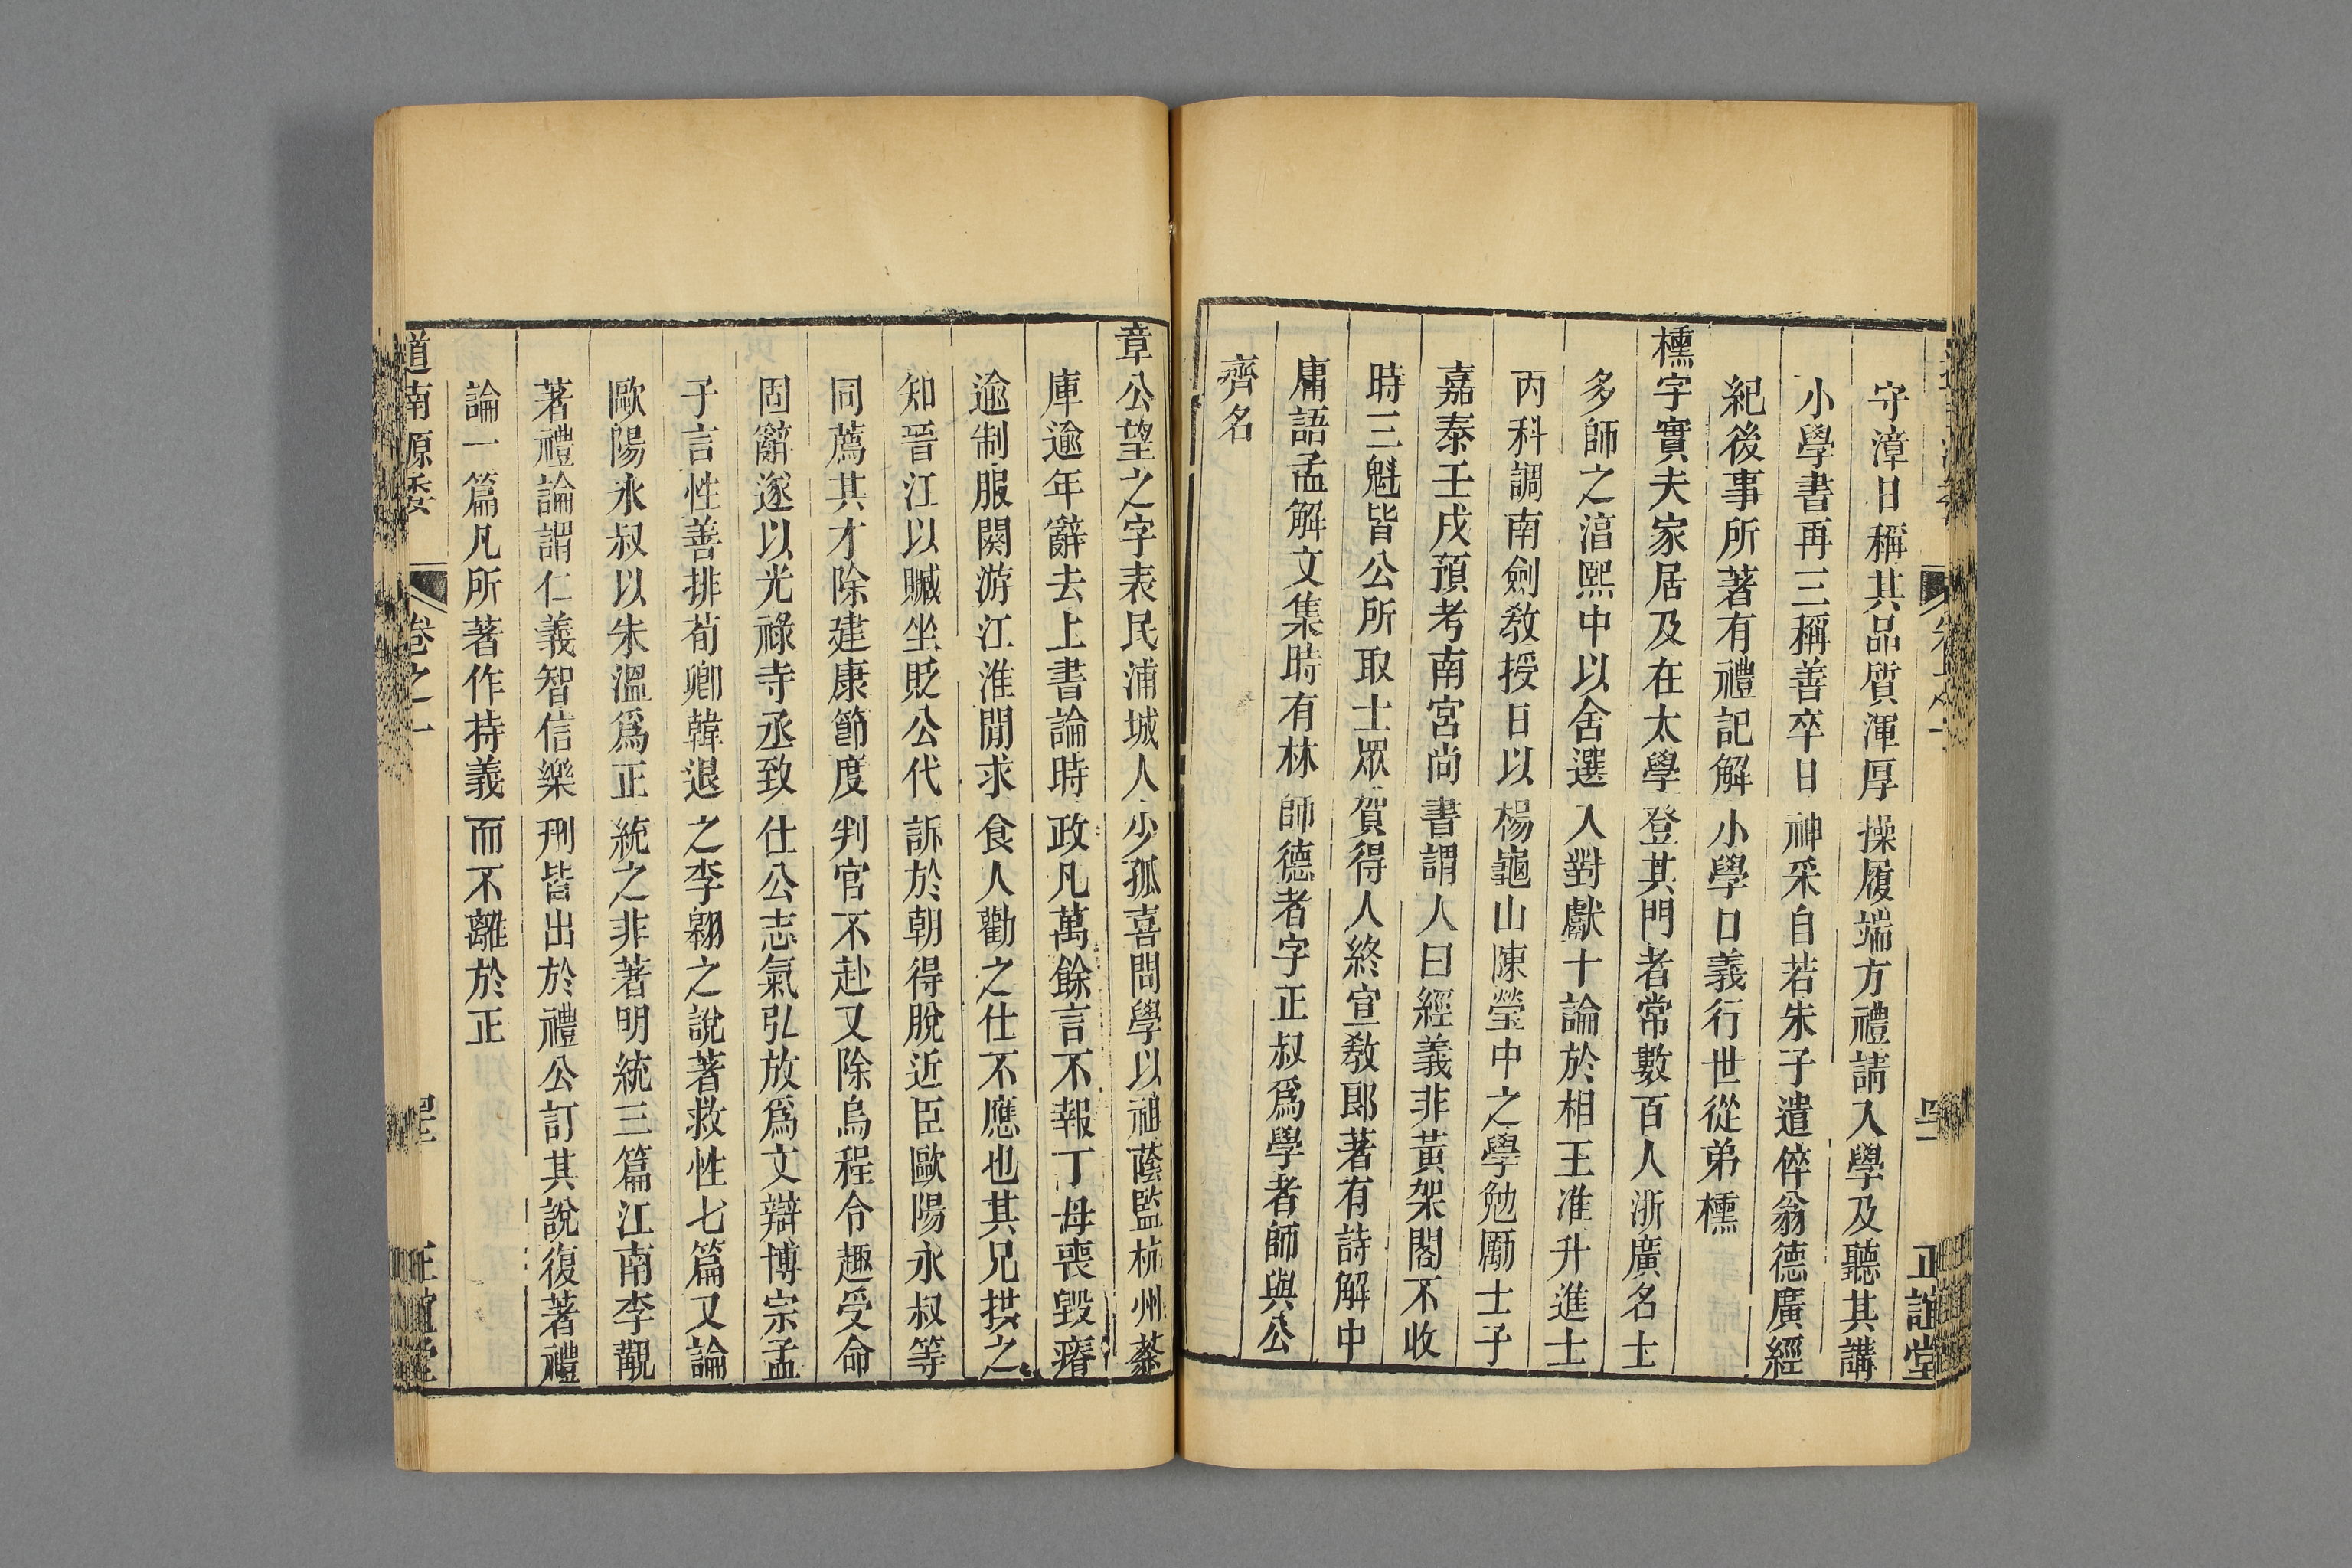 守漳日稱其品質渾厚操履端方禮請入學及聽其講
小學書再三稱善卒日神采自若朱子遣倅翁德廣經
紀後事所著有禮記解小學口義行世從弟櫄
櫄字實夫家居及在太學登其門者常數百人浙廣名士
多師之湻熙中以舍選入對獻十論於相王准升進士
丙科調南劍敎授日以楊龜山陳瑩中之學勉勵士子
嘉泰壬戌預考南宮尚書謂人曰經義非黃架閣不收
時三魁皆公所取士眾賀得人終宣敎郎著有詩解中
庸語孟解文集時有林師德者字正叔爲學者師與公
齊名
正誼堂
章公望之字表民浦城人少孤喜問學以祖蔭監杭州茶
庫逾年辭去上書論時政凡萬餘言不報丁母喪毀瘠
逾制服闋游江淮閒求食人勸之仕不應也其兄拱之
知晉江以贓坐貶公代訴於朝得脫近臣歐陽永叔等
同薦其才除建康節度判官不赴又除烏程令趣受命
固辭遂以光祿寺丞致仕公志氣弘放爲文辯博宗孟
子言性善排荀卿韓退之李翱之說著救性七篇又論
歐陽永叔以朱溫爲正統之非著明統三篇江南李覯
著禮論謂仁義智信樂刑皆出於禮公訂其說復著禮
論一篇凡所著作持義而不離於正
道南源委 卷之一 正誼堂